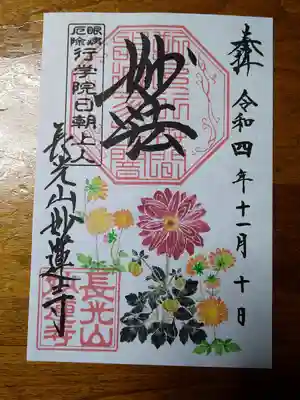 奉拝 令和四年十一月十日
妙法
眼病
厄除
行学院日朝上人
長光山妙蓮寺
長光山
妙蓮寺